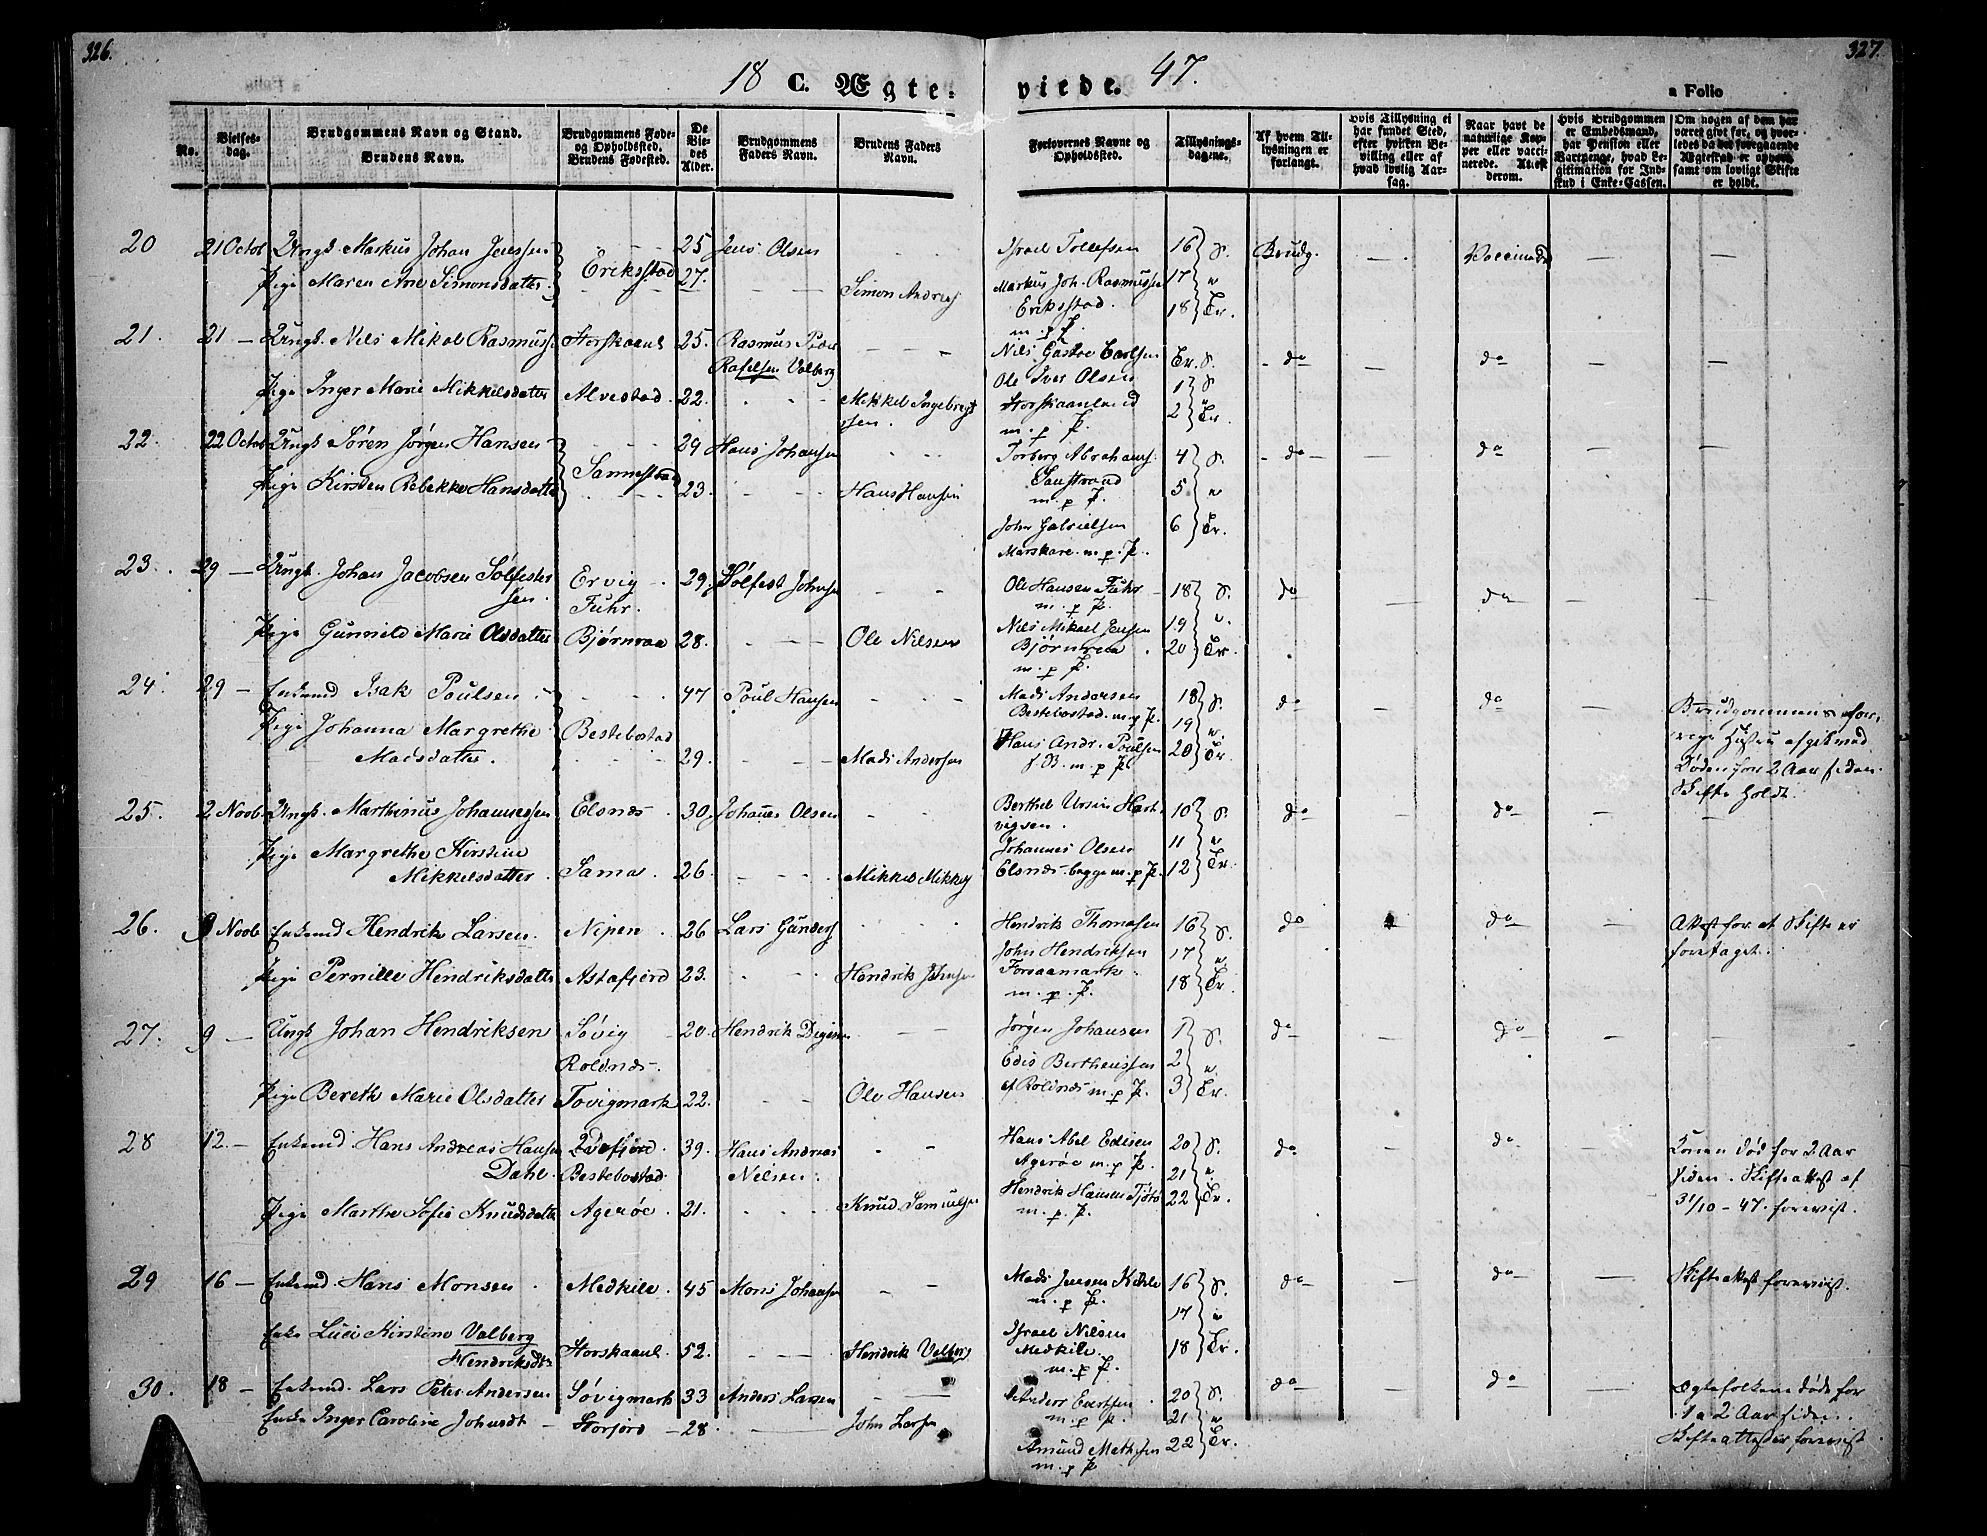 326.
18 C. Ægte-
No.
Vielses-
dag.
Brudgommens Navn og Stand.
Brudens Navn.
Brudgommens Føde-
og Opholdssted.
Brudens Fødested.
De
Vie-
des
Alder.
Brudgommens
Faders Navn.
Brudens Faders
Navn.
20 21 Octob Ungk. Markus Johan Jenssen 25 Jens Olsen
Eriksstad
Pige Maren Ane Simonsdatter 27. Simon Andrej
21. 21 — Ungk. Nils Mikal Rasmuss Storskaanl 25. Rasmus Peder
Rafelsen Valberg
Pige Inger Marie Mikkelsdatter Alvestad. 22. Mikkel Ingebregt
sen.
22. 22 Octob Ungk Søren Jørgen Hansen 29 Hans Johansen
Sannestad
Pige Kirsten Rebekka Hansdatte 23. Hans Hansen
23. 29 — Ungk. Johan Jacobsen Sølfester Ervig 29. Sølfest Johnse
sen. Fuhr.
Pige Gunnild Marie Olsdatter Bjørnraa 28. Ole Nilsen
24. 29 — Enkemd Isak Poulsen 47 Poul Hansen
Pige Johanna Margrethe Bestebostad
Madsdatter. 29. Mads Andersen
25. 2 Novb. Ungk. Marthinus Johannessen Elsnæs 30. Johanes Olsen
Pige Margrethe Kirstine
Mikkelsdatter Samas. 26. Mikkel Mikkej
26. 9 Novb Enkemd Hendrik Larsen. Nipen 26 Lars Gundersj
Pige Pernille Hendriksdatte Astafjord 23. Hendrik Johnse
27. 9 — Ungk Johan Hendriksen Søvig 20. Hendrik Digesen
Roldnæs.
Pige Bereth Marie Olsdatter Tovigmark 22. Ole Hansen
28 12. — Enkemd. Hans Andreas Hansen 39. Hans Andreas
Dahl. Bestebostad Nilsen.
Pige Marthe Sofie Knudsdatte Agerøe 21. Knud Samuelse
29 16 — Enkemd. Hans Monsen Medkile. 45 Mons Johanse
Enke Luci Kirstine Valberg
Hendriksdtr Storskaanl. 52. Hendrik Valberg
30. 18 — Enkemd. Lars Peter Andersen Søvigmark 33 Anders Larsen
Enke Inger Caroline Johnsdt Storjord 28. John Larsen
327.
viede. 47.
a Folio
Forlovernes Navne og
Opholdssted.
Tillysnings-
dagene.
Af hvem Til-
lysningen er
forlangt.
Hvis Tillysning ei
har fundet Sted,
efter hvilken Be-
villing eller af
hvad lovlig Aar-
sag.
Naar havt de
naturlige Kop-
per eller vacci-
nerede. Attest
derom.
Hvis Brudgommen
er Embedsmand,
har Pension eller
Vartpenge, hvad Le-
gitimation for Ind-
skud i Enke-Cassen.
Om nogen af dem har
været givt før, og hvor-
ledes da det foregaaende
Ægteskab er ophørt
samt om lovligt Skifte
er holdt.
Israel Tollefsen 16 S. Brudg. Vaccinerede
Markus Joh. Rasmusse 17 "
Eriksstad. 18 Tr.
m. p. P.
Nils Gustav Carlsen Tr. S. do do
Ole Iver Olsen 1 S
Storskaanland 2 Tr.
m. p. P.
Torberg Abrahams. 4 S. do do
Sanstrand 5 "
m. p. P.
John Gabrielsen 6 Tr.
Marskare. m. p. P.
Ole Hansen Fuhr 18 S. do do
m. p. P.
Nils Mikael Jensen 19 "
Bjørnraa 20 Tr.
m. p. P.
Mads Andersen 18 S. do do Brudgommens for-
Bestebostad. m. p. P. 19 " rige Hustru afgik med
Hans Andr. Poulsen 20 Tr Døden for 2 Aar siden.
s. B. m. p. P. Skifte holdt.
Berthel Ursin Hart- 10 S. do do
vigsen.
Johannes Olsen 11 "
Elsnæs begge m. p. P. 12 Tr.
Hendrik Thomasen 16 S. do do Attest for at Skifte er
John Hendriksen 17 " foretaget.
Forsaamark 18 Tr.
m. p. P.
Jørgen Johansen 1 S. do do
Edis Bertheussen 2 "
af Roldnæs m. p. P. 3 Tr.
Hans Abel Edisen 20 S. do do Konen død for 2 Aar
Agerøe m. p. P. 21 " siden. Skifteattest af
Hendrik Hansen Tjøtø 22 Tr. 31/10 - 47. forevist.
m. p. P.
Mads Jensen Kihle 16 S. do do Skifteattest forevist.
m. p. P. 17 "
Israel Nilsen 18 Tr.
Medkile.
m. p. P.
Anders Evertsen 20 S. do do Ægtefolkene døde for
m. p. P. 21 " 1 a 2 Aar siden.
Amund Mathisen 22 Tr. Skifteattester forevist
m. p. P.